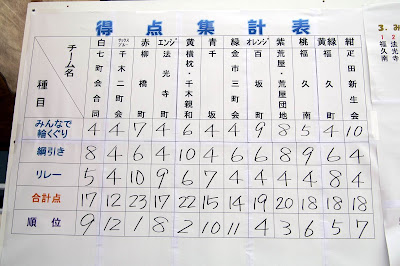 得点集計表
チーム名 種目 白 サックスブルー 赤 エンジ 黄 青 緑 オレンジ 紫 桃 黄緑 紺
七町会合同 千木二町会 柳橋町 法光寺町 横枕・千木親和 千坂 金市三町会 百坂町 荒屋・荒屋団地 福久南 福久町 疋田新生会
みんなで輪くぐり 4 4 7 4 6 4 4 9 8 5 4 10
綱引き 8 4 6 4 10 4 6 6 8 9 6 4
リレー 5 4 10 9 6 7 4 4 4 4 8 4
合計点 17 12 23 17 22 15 14 19 20 18 18 18
順位 9 12 1 8 2 10 11 4 3 6 5 7
3.み
1 2
福久南 法光寺